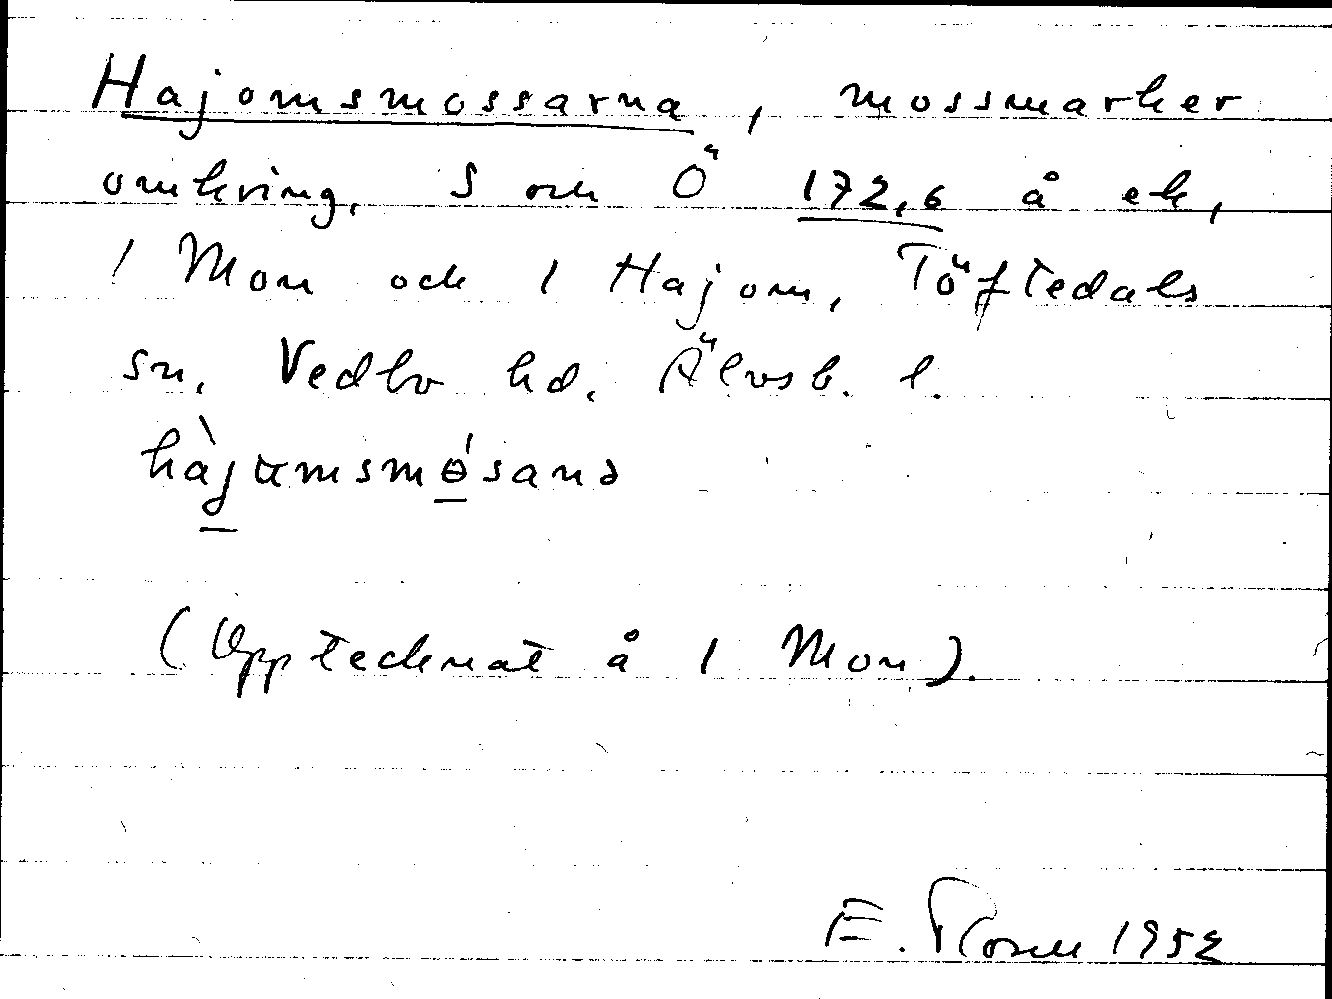 Hajomsmossarna, mossmarker
omkring, S och Ö 172,6 å ek,
1 Mon och 1 Hajom, Töftedals
sn, Vedbo hd, Älvsb. l.
hàjumsmɵ́sanə
(Upptecknat å 1 Mon).
E. 1952